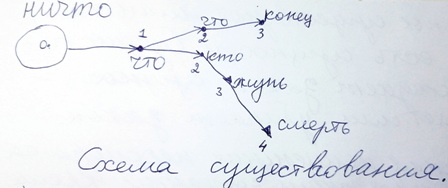 ничто
a
1
что
2
что
3
конец
2
кто
3
жизнь
4
смерть
Схема существования.